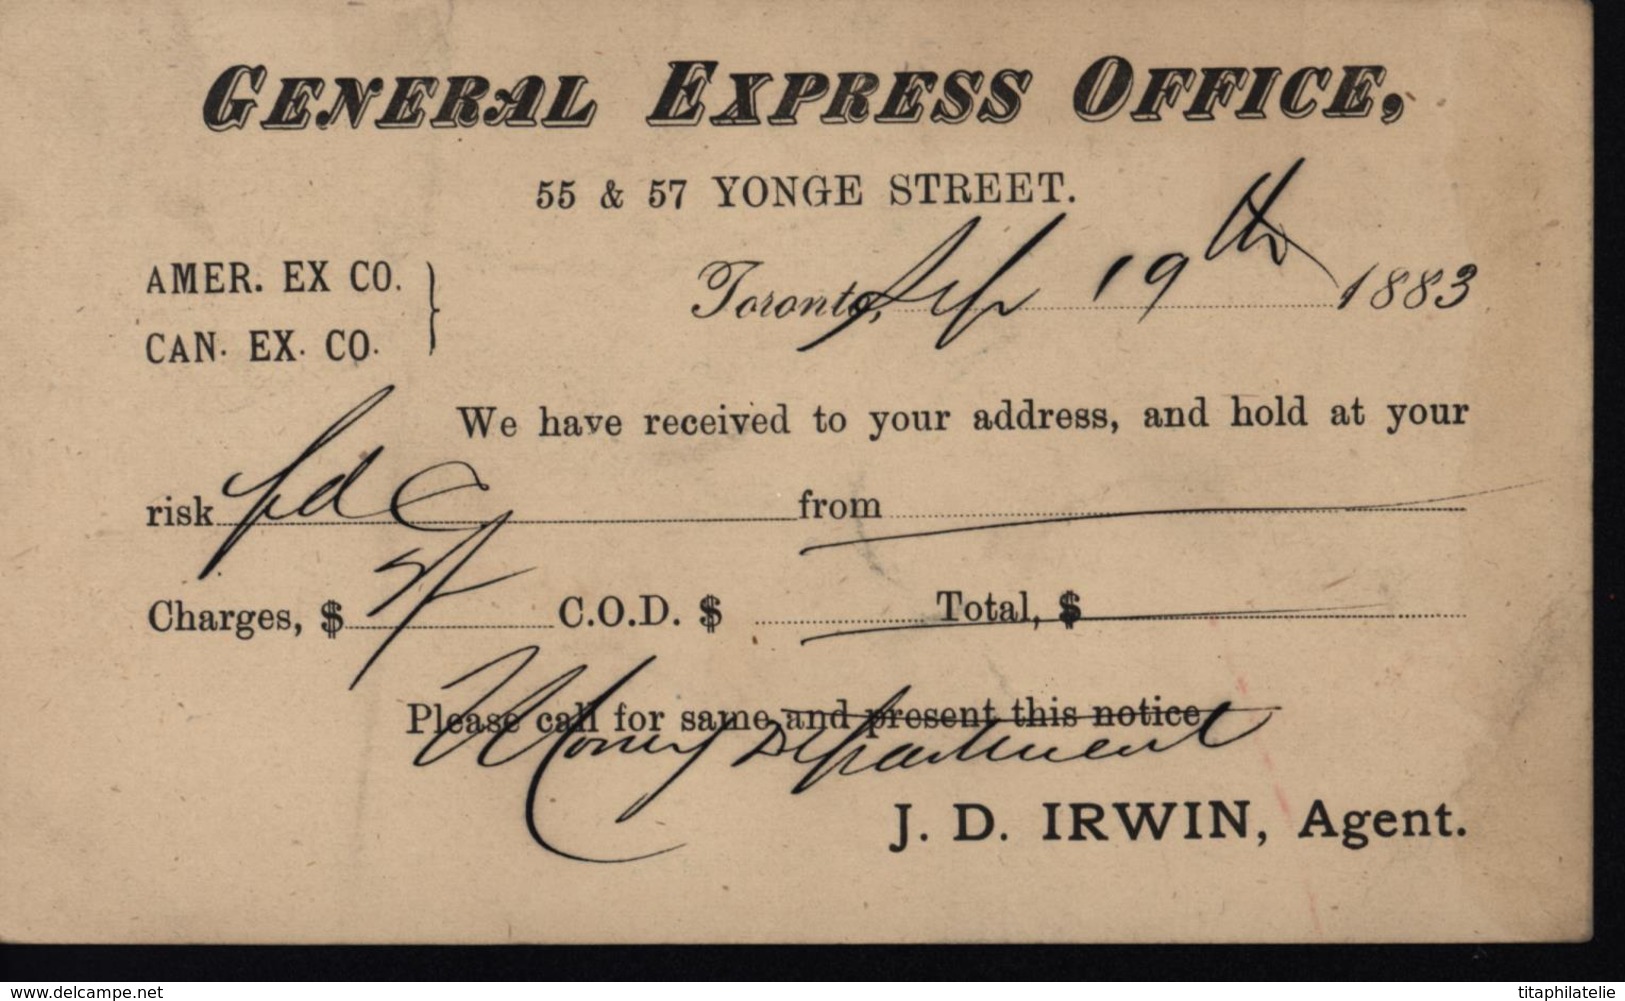 GENERAL EXPRESS OFFICE,
55 & 57 YONGE STREET.
AMER. EX CO.
CAN. EX. CO.
Toronto, Sep 19th 1883
We have received to your address, and hold at your
risk from
Charges, $ C.O.D. $ Total, $
Please call for same and present this notice
Money Department
J. D. IRWIN, Agent.
www.delcampe.net
titaphilatelie